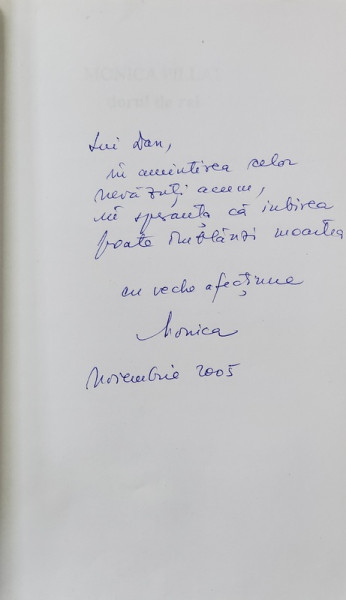 Lui Dan,
în amintirea celor
nevăzuți acum,
în speranța că iubirea
poate îmblânzi moartea
cu veche afecțiune
Monica
Noiembrie 2005